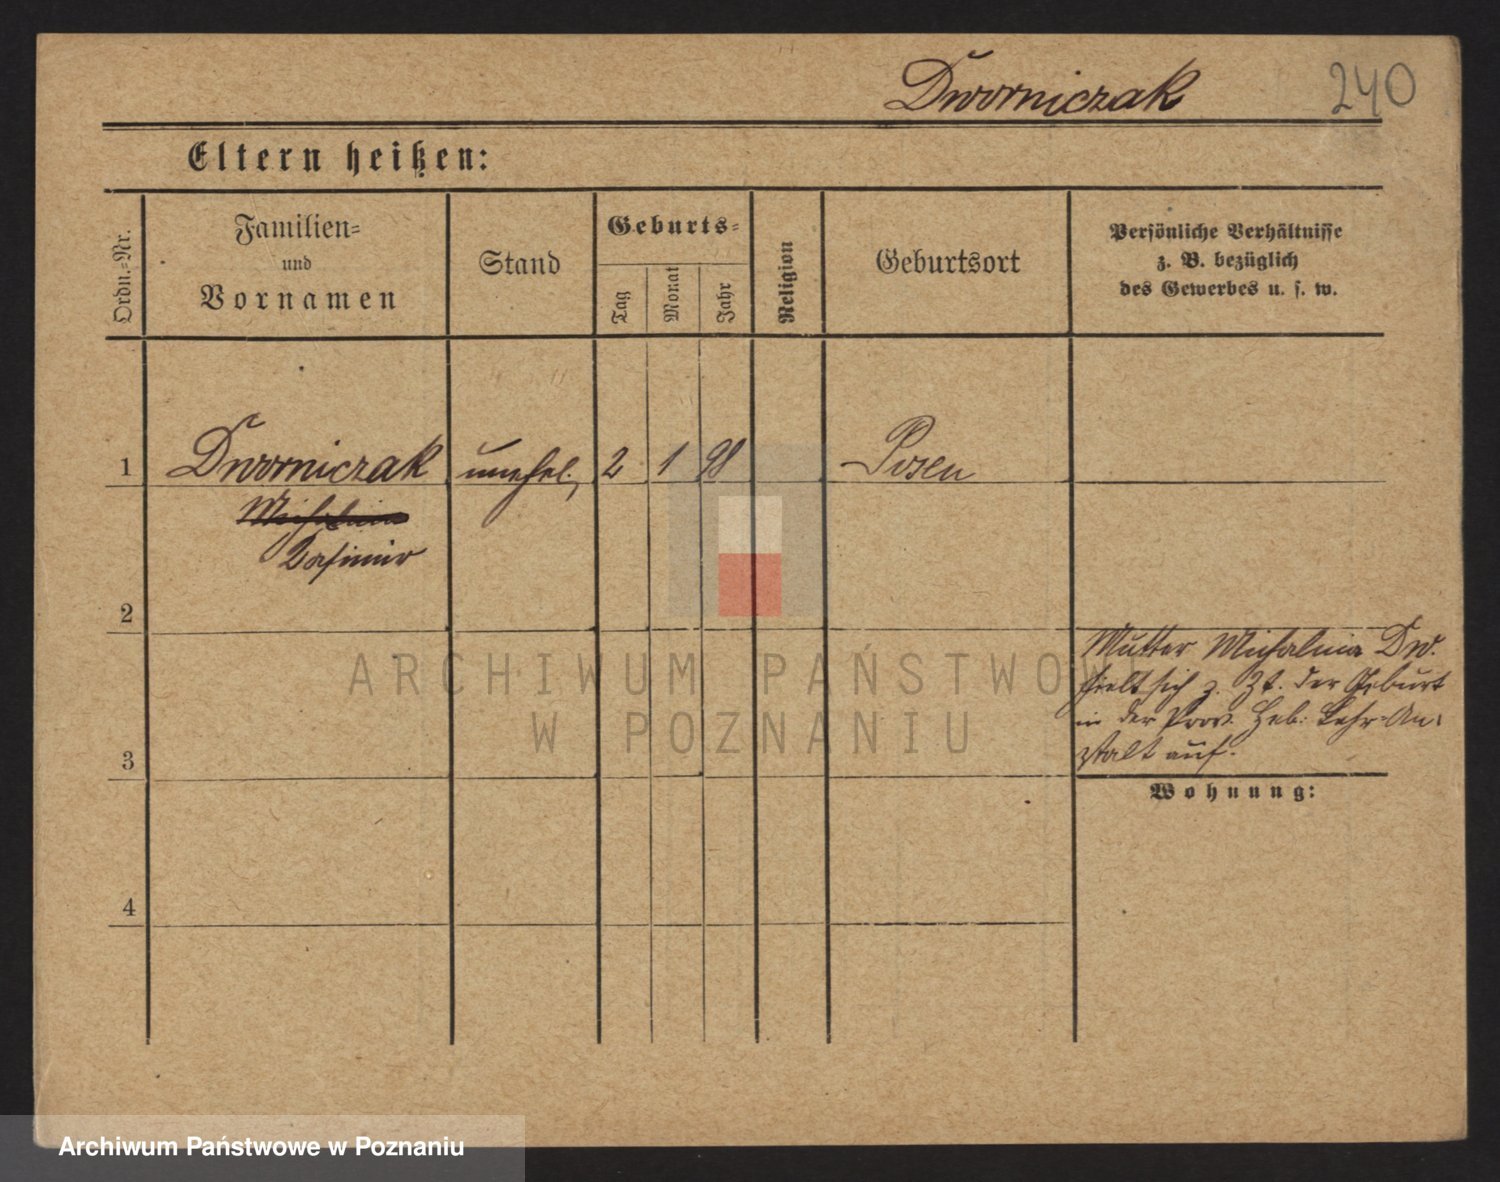 Dworniczak 240
Eltern heißen:
Ordn.-Nr.
Familien-
und
Vornamen
Stand
Geburts-
Tag
Monat
Jahr
Religion
Geburtsort
Persönliche Verhältnisse
z. B. bezüglich
des Gewerbes u. s. w.
1 Dworniczak unehel. 2 1 98 Posen
Michalina
Casimir
2
Mutter Michalina Dw.
hielt sich z. Zt. der Geburt
in der Prov. Heb. Lehr-An-
3 stalt auf.
Wohnung:
4
ARCHIWUM PAŃSTWOWE
W POZNANIU
Archiwum Państwowe w Poznaniu